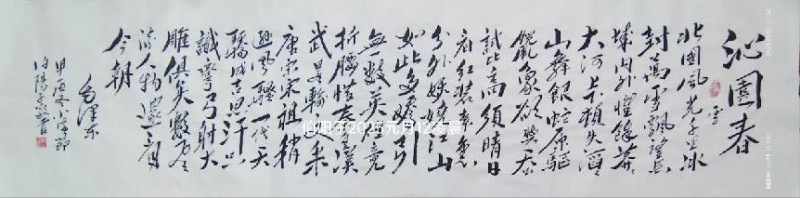 沁園春
雪
北國風光千里冰
封萬里雪飄望長
城內外惟餘莽莽
大河上下頓失滔滔
山舞銀蛇原驅
蠟象欲與天公
試比高須晴日
看紅裝素裹
分外妖嬈江山
如此多嬌引
無數英雄競
折腰惜秦皇漢
武略輸文采
唐宗宋祖稍
遜風騷一代天
驕成吉思汗只
識彎弓射大
雕俱矣數風
流人物還看
今朝
毛澤東